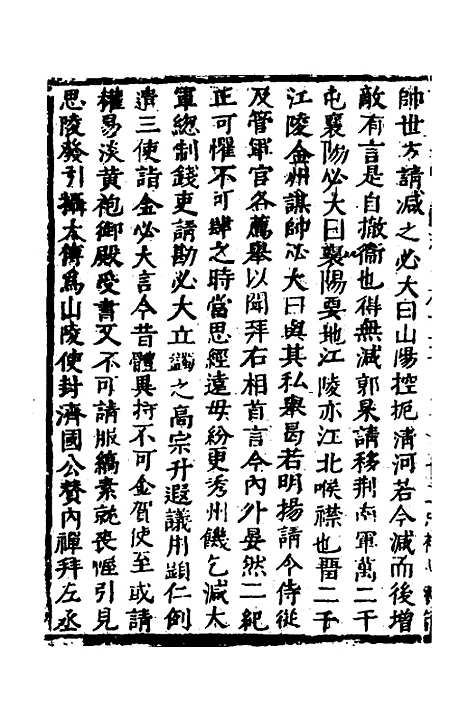 帥世方請減之必大曰山陽控扼清河若今減而後增
敵有言是自撤衞也得無減郭杲請移荆南軍萬二千
屯襄陽必大曰襄陽要地江陵亦江北喉襟也畱二千
江陵金州謀帥必大曰與其私舉曷若明揚請令侍從
及管軍官各薦舉以聞拜右相首言今內外晏然二紀
正可懼不可肆之時當思經遠毋紛更秀州饑乞減大
軍總制錢吏請勘必大立蠲之高宗升遐議用顯仁例
遣三使詣金必大言今昔體異持不可金賀使至或請
權易淡黄袍御殿受書又不可請服縞素就喪幄引見
思陵發引攝太傅爲山陵使封濟國公贊內禪拜左丞